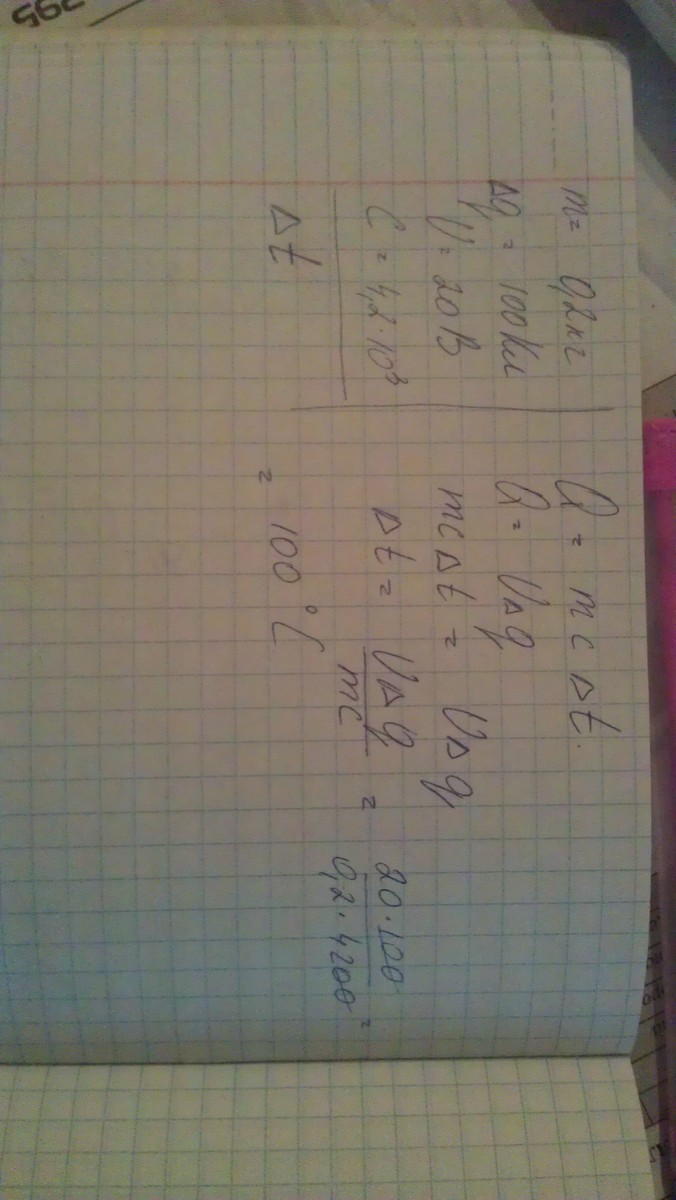 m = 0,2кг
Δq = 100Кл
U = 20В
C = 4,2·10³
Δt
Q = mcΔt.
Q = UΔq
mcΔt = UΔq
Δt = UΔq/mc = 20·100/0,2·4200 =
= 100°C
395